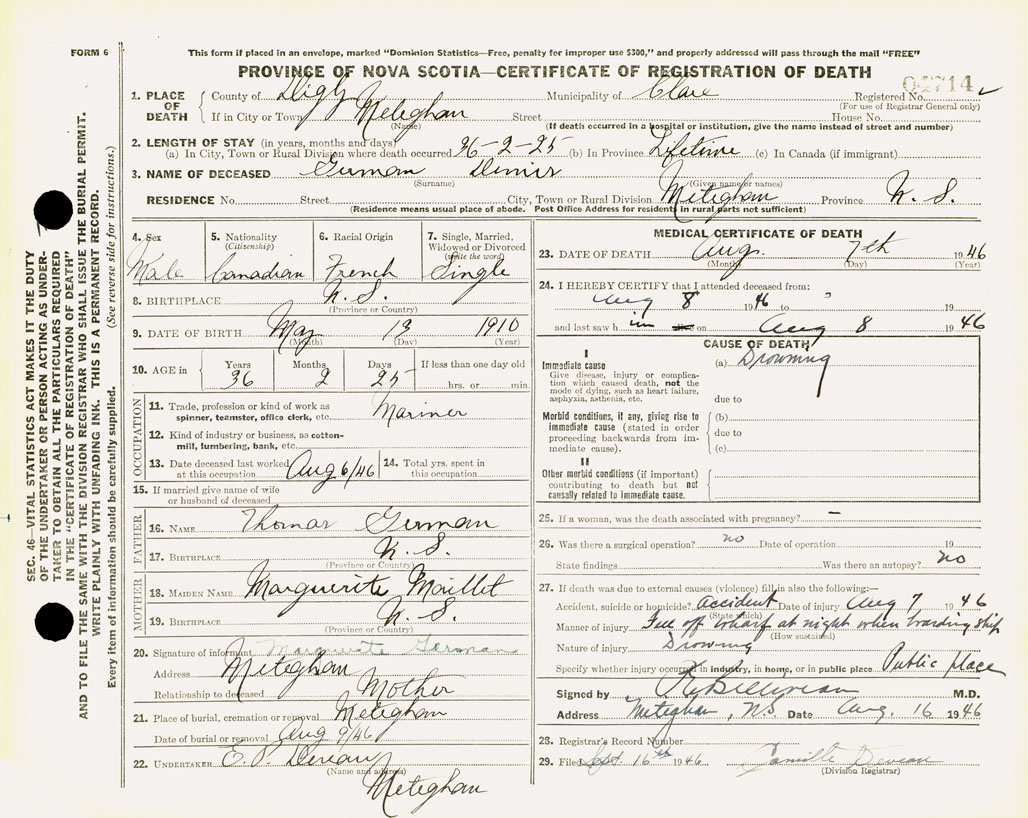 FORM 6
This form if placed in an envelope, marked "Dominion Statistics—Free, penalty for improper use $300," and properly addressed will pass through the mail "FREE"
PROVINCE OF NOVA SCOTIA—CERTIFICATE OF REGISTRATION OF DEATH
04714
1. PLACE OF DEATH County of Digby Municipality of Clare Registered No.
(For use of Registrar General only)
If in City or Town Meteghan Street House No.
(Name) (If death occurred in a hospital or institution, give the name instead of street and number)
2. LENGTH OF STAY (in years, months and days)
(a) In City, Town or Rural Division where death occurred 36-2-25 (b) In Province Lifetime (c) In Canada (if immigrant)
3. NAME OF DECEASED German Denis
(Surname) (Given name or names)
RESIDENCE No. Street City, Town or Rural Division Meteghan Province N. S.
(Residence means usual place of abode. Post Office Address for residents in rural parts not sufficient)
4. Sex 5. Nationality 6. Racial Origin 7. Single, Married, Widowed or Divorced
(Citizenship) (write the word)
Male Canadian French Single
8. BIRTHPLACE N. S.
(Province or Country)
9. DATE OF BIRTH May 13 1910
(Month) (Day) (Year)
10. AGE in Years Months Days If less than one day old
36 2 25 hrs. or min.
OCCUPATION
11. Trade, profession or kind of work as spinner, teamster, office clerk, etc. Mariner
12. Kind of industry or business, as cotton-
mill, lumbering, bank, etc.
13. Date deceased last worked at this occupation Aug 6/46 14. Total yrs. spent in this occupation
15. If married give name of wife
or husband of deceased
FATHER
16. NAME Thomas German
17. BIRTHPLACE N. S.
(Province or Country)
MOTHER
18. MAIDEN NAME Marguerite Maillet
19. BIRTHPLACE N. S.
(Province or Country)
20. Signature of informant Marguerite German
Address Meteghan
Relationship to deceased Mother
21. Place of burial, cremation or removal Meteghan
Date of burial or removal Aug 9/46
22. UNDERTAKER E. P. Deveau
(Name and address)
Meteghan
MEDICAL CERTIFICATE OF DEATH
23. DATE OF DEATH Aug. 7th 1946
(Month) (Day) (Year)
24. I HEREBY CERTIFY that I attended deceased from:
Aug 8 1946 to 19
and last saw h im on Aug 8 1946
CAUSE OF DEATH
I
Immediate cause (a) Drowning
Give disease, injury or complica-
tion which caused death, not the
mode of dying, such as heart failure,
asphyxia, asthenia, etc. due to
Morbid conditions, if any, giving rise to (b)
immediate cause (stated in order due to
proceeding backwards from im-
mediate cause). (c)
II
Other morbid conditions (if important)
contributing to death but not
causally related to immediate cause.
25. If a woman, was the death associated with pregnancy? —
26. Was there a surgical operation? no Date of operation 19
State findings Was there an autopsy? no
27. If death was due to external causes (violence) fill in also the following:—
Accident, suicide or homicide? accident Date of injury Aug 7 1946
(State which)
Manner of injury Fell off wharf at night when boarding ship
(How sustained)
Nature of injury Drowning
Specify whether injury occurred in industry, in home, or in public place Public place
Signed by M.D.
Address Meteghan, N.S. Date Aug. 16 1946
28. Registrar's Record Number
29. Filed Sept. 16th 1946 Camille Deveau
(Division Registrar)
SEC. 46—VITAL STATISTICS ACT MAKES IT THE DUTY
OF THE UNDERTAKER OR PERSON ACTING AS UNDER-
TAKER TO OBTAIN ALL THE PARTICULARS REQUIRED
IN THE "CERTIFICATE OF REGISTRATION OF DEATH"
AND TO FILE THE SAME WITH THE DIVISION REGISTRAR WHO SHALL ISSUE THE BURIAL PERMIT.
WRITE PLAINLY WITH UNFADING INK. THIS IS A PERMANENT RECORD.
Every item of information should be carefully supplied. (See reverse side for instructions.)